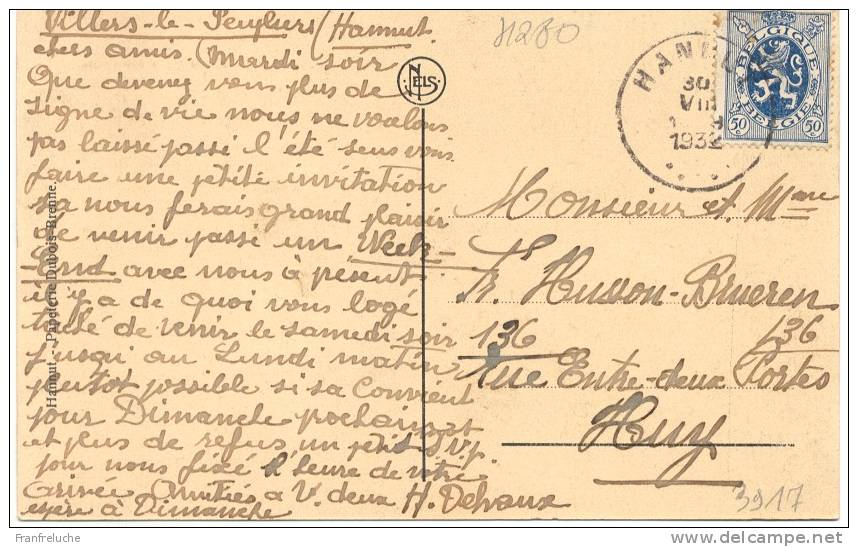 Villers-le-Peuplier (Hannut
chers amis. (Mardi soir
Que devenez vous plus de
signe de vie nous ne voulons
pas laissé passé l'été sens vous
faire une petite invitation
sa nous ferais grand plaisir
de venir passé un Week-
End avec nous à présent
il y a de quoi vous logé
taché de venir le samedi soir
jusqu'au Lundi matin
plutot possible si sa Convient
pour Dimanche prochain et
et plus de refus un petit
pour nous fixé l'heure de votre
arrivée Amitiés a V. deux H. Delvaux
espère à Dimanche
Hannut. - Papeterie Dubois-Brenne.
NELS
H280
HANNUT
30
VIII
1932
BELGIQUE
BELGIË
50 50
Monsieur et Mme
F. Husson-Brueren
136 136
Rue Entre-deux Portes
Huy
3917
Frankfreluche
http://www.delcampe.net